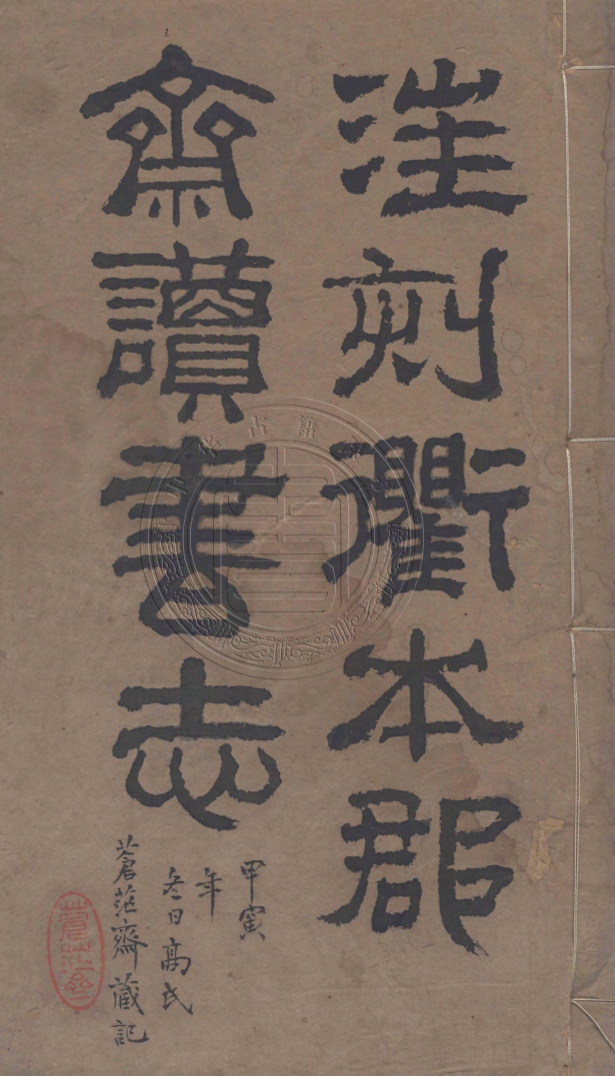 汪刻衢本郡
齋讀書志
甲寅
年
冬日高氏
蒼茫齋藏記